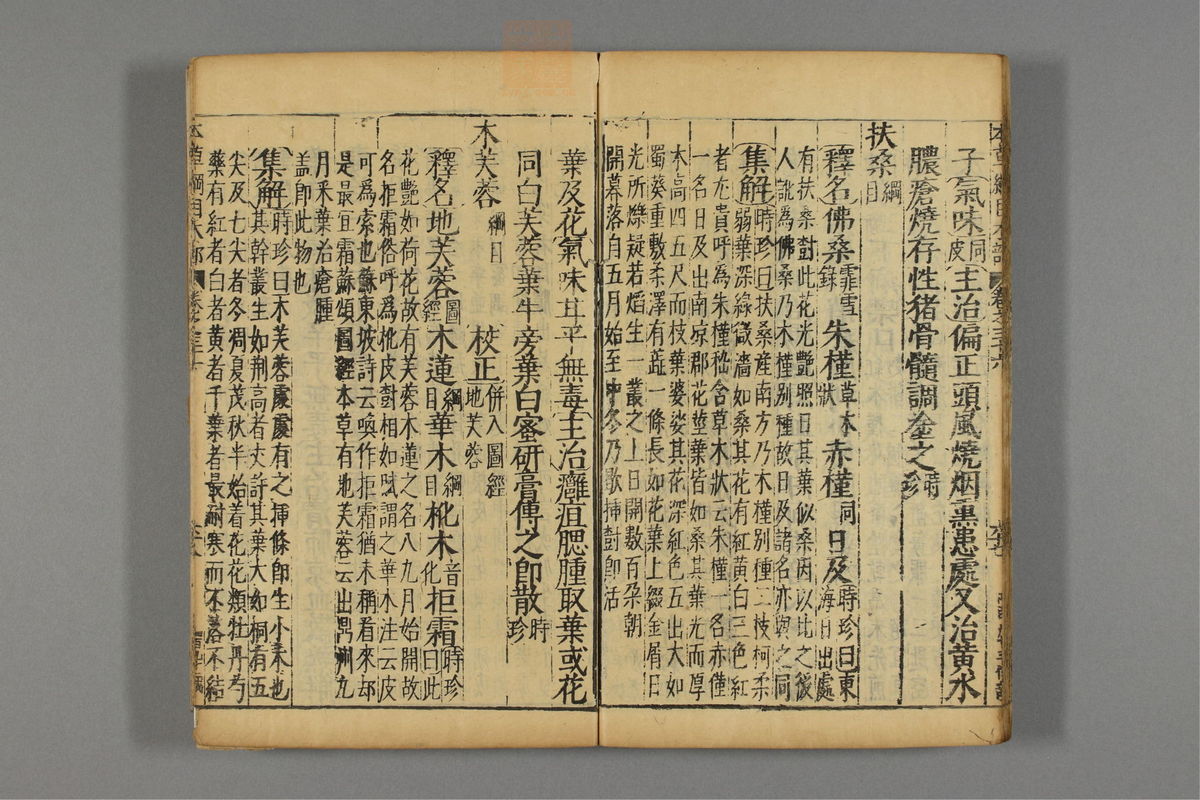 子氣味同皮主治偏正頭風燒烟熏患處又治黃水
膿瘡燒存性猪骨髓調塗之時珍
扶桑綱目
釋名佛桑霏雪錄朱槿草木狀赤槿同日及時珍曰東海日出處
有扶桑樹此花光艷照日其葉似桑因以比之後
人訛爲佛桑乃木槿別種故日及諸名亦與之同
集解時珍曰扶桑産南方乃木槿別種其枝柯柔弱葉深綠微濇如桑其花有紅黃白三色紅
者尤貴呼爲朱槿嵇含草木狀云朱槿一名赤槿
一名日及出南凉郡花莖葉皆如桑其葉光而厚
木高四五尺而枝葉婆娑其花深紅色五出大如
蜀葵重敷柔澤有蕋一條長如花葉上綴金屑日
光所爍疑若熖生一叢之上日開數百朶朝
開暮落自五月始至中冬乃歇挿樹即活
葉及花氣味甘平無毒主治癰疽腮腫取葉或花
同白芙蓉葉牛旁葉白蜜研膏傅之即散時珍
木芙蓉綱目校正併入圖經地芙蓉
釋名地芙蓉圖經木蓮綱目華木綱目杹木音化拒霜時珍曰此
花艷如荷花故有芙蓉木蓮之名八九月始開故
名拒霜俗呼爲杹皮樹相如賦謂之華木注云皮
可爲索也蘇東坡詩云喚作拒霜猶未稱看來却
是最宜霜蘇頌圖經本草有地芙蓉云出鼎州九
月采葉治瘡腫
盖即此物也
集解時珍曰木芙蓉處處有之挿條即生小木也其幹叢生如荆高者丈許其葉大如桐有五
尖及七尖者冬凋夏茂秋半始着花花類牡丹芍
藥有紅者白者黃者千葉者最耐寒而不落不結
本草綱目木部